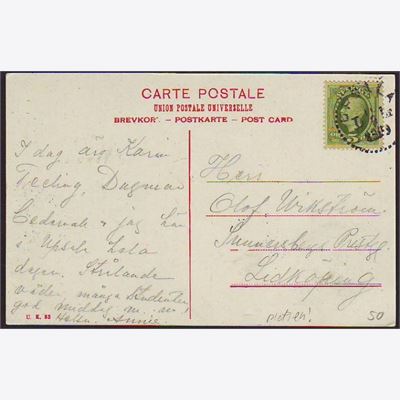 CARTE POSTALE
UNION POSTALE UNIVERSELLE
BREVKORT – POSTKARTE – POST CARD
I dag äro Karin
Dagmar
& jag här
i Upsala hela
dagen. Strålande
väder, många studenter,
god middag m. m.
Annie.
Herr
Olof Wikström.
Sunnersbergs Prestg.
Lidköping
U. E. 83
50